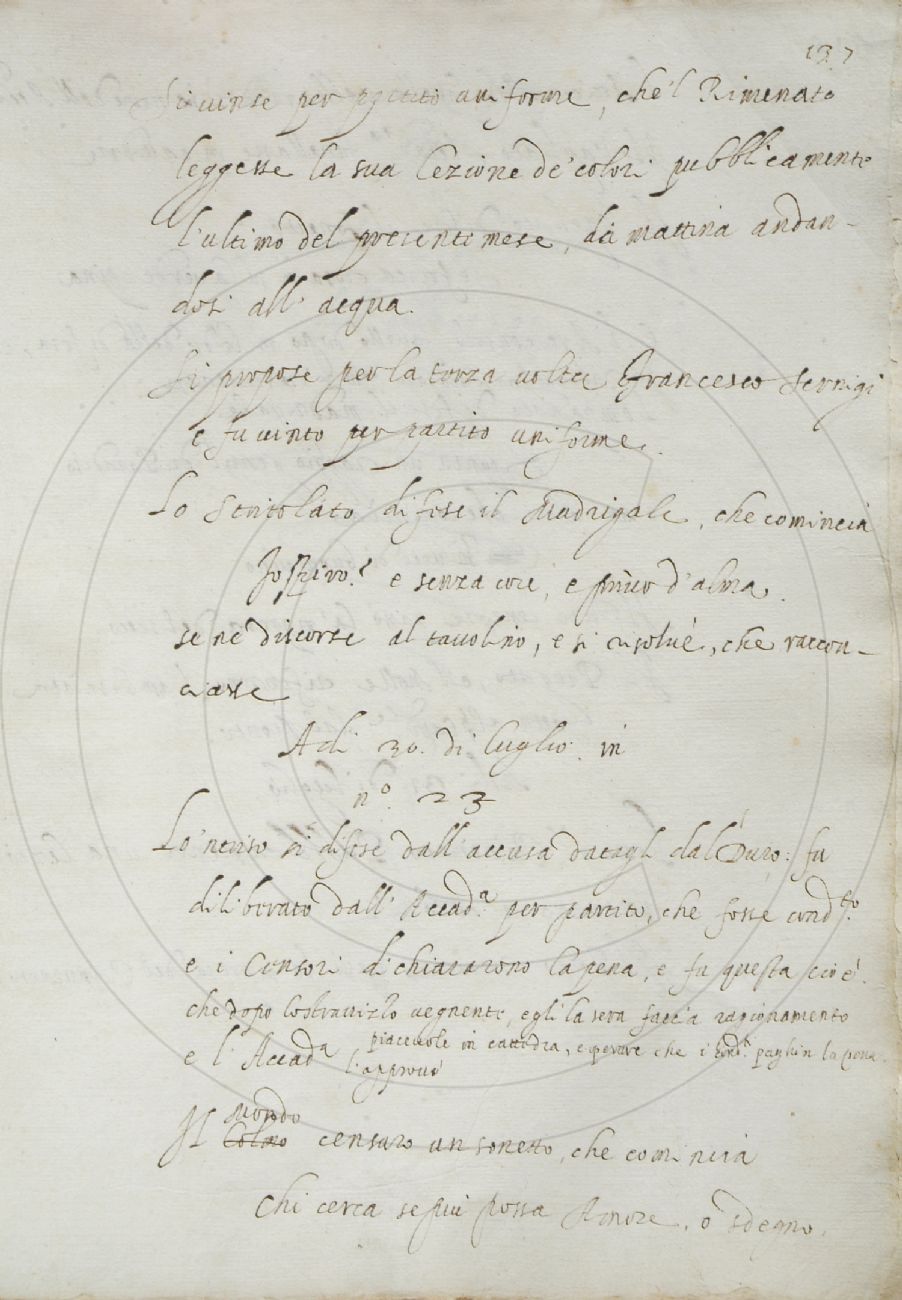 137
Si vinse per partito uniforme, che'l Rimenato
leggesse la sua lezione de' colori pubblicamente
l'ultimo del presente mese, la mattina andan-
dosi all' acqua.
Si propose per la terza volta Francesco Sernigi
e fu vinto per partito uniforme.
Lo Stritolato difese il Madrigale, che comincia
e senza core, e privo d'alma.
se ne discorse al tavolino, e si risolvé, che raccon-
ciasse
Adi 30. di Luglio. in
n.º 23
Lo 'nferigno si difese dall' accusa datagli dal Duro: fu
diliberato dall' Accad.ª per partito, che fosse cond.to
e i Censori dichiararono la pena, e fu questa cioè.
che dopo lo stravizzo vegnente, egli la sera faccia ragionamento
piacevole in cattedra, e che i paghin la pena.
e l' Accad.ª l'approvò
Il Mondo
Colmo censurò un sonetto, che comincia
Chi cerca se più possa Amore, o sdegno.